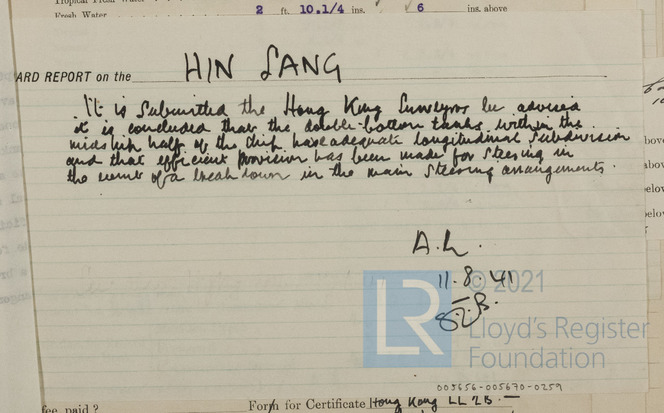 Tropical Fresh Water
Fresh Water 2 ft. 10.1/4 ins. 6 ins. above
ARD REPORT on the HIN SANG
It is submitted the Hong Kong Surveyors be advised
it is concluded that the double-bottom tanks within the
midship half of the ship have adequate longitudinal subdivision
and that efficient provision has been made for steering in
the event of a break down in the main steering arrangements.
A.L.
11.8.41
LR © 2021
Lloyd's Register
Foundation
005656-005670-0259
fee paid? Form for Certificate Hong Kong LL 2B.—